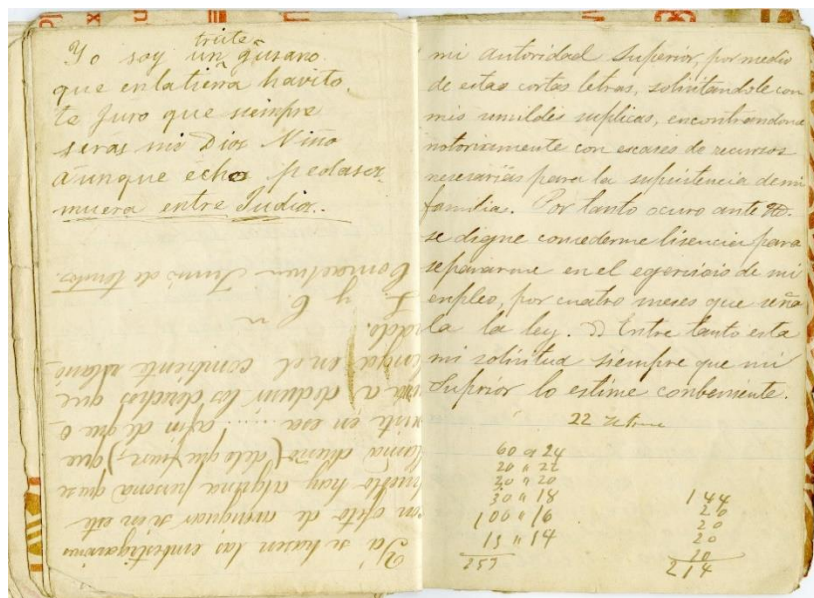 triste
Yo soy un gusano
que en la tierra havito.
te Juro que siempre
seras mi Dios Niño
aunque echo pedasos
muera entre Judios.
Ya se hasen las embestigaciones
con ojeto de aveniguar si en este
pueblo hay alguna persona que se
llama dueño (de lo que fuere,) que
existe en esa ...... afin de que o
a dedusir los derchos que
tenga en el
L y C.
Comaetuen Juns de tomatos.
mi autoridad superior, por medio
de estas cortas letras, solisitandole con
mis umildes suplicas, encontrandome
notoriamente con escases de recursos
nesesarias para la supsistencia de mi
familia. Por tanto ocuro ante Ud.
se digne concederme lisencia para
separarme en el egersisio de mi
enpleo, por cuatro meses que seña
la la ley. Entre tanto esta
mi solisitud siempre que mi
Superior lo estime conbeniente.
22
60 a 24
20 " 22
20 " 20
30 " 18
100 " 16
15 " 14
257
144
20
20
20
10
214